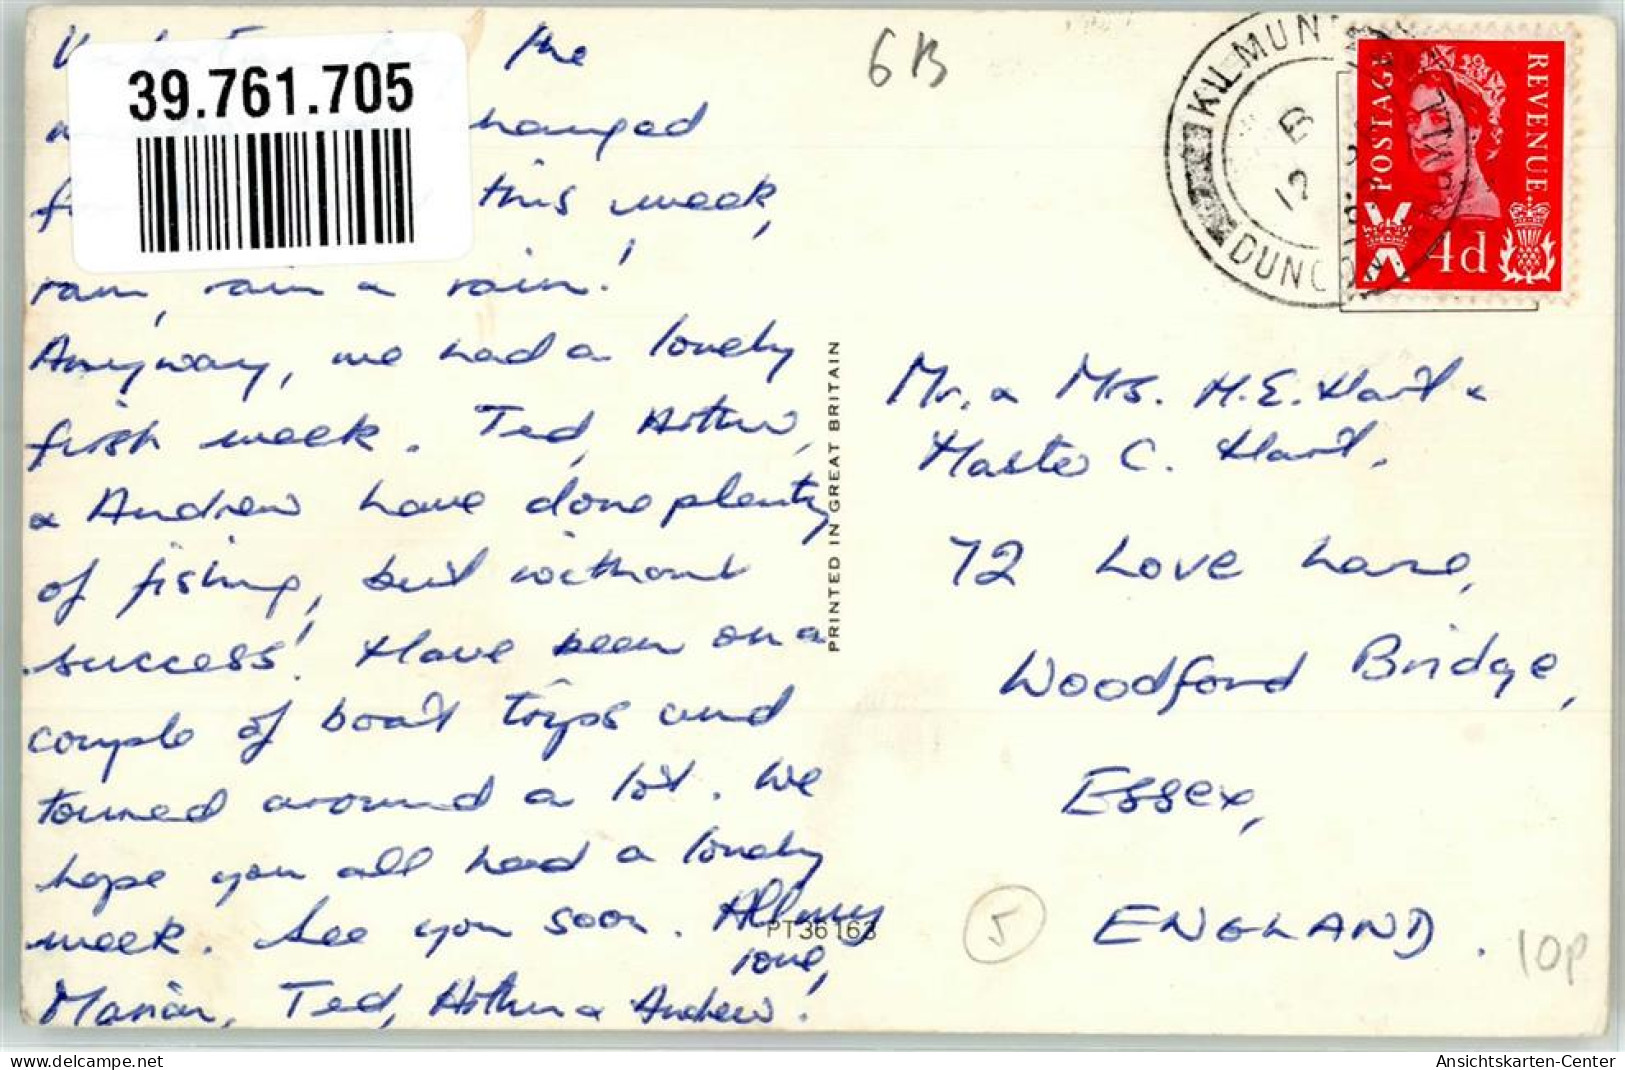 the
39.761.705
hanged
this week,
rain, rain & rain!
Anyway, we had a lovely
first week. Ted, Arthur,
& Andrew have done plenty
of fishing, but without
success! Have been on a
couple of boat trips and
toured around a lot. We
hope you all had a lovely
week. See you soon. All my
love,
Marian, Ted, Arthur & Andrew!
PT36163
PRINTED IN GREAT BRITAIN
6B
KILMUN
12
DUNOON
POSTAGE
REVENUE
4d
Mr. & Mrs. H.E. Hart &
Master C. Hart,
72 Love Lane,
Woodford Bridge,
Essex,
ENGLAND.
5
10p
Ansichtskarten-Center